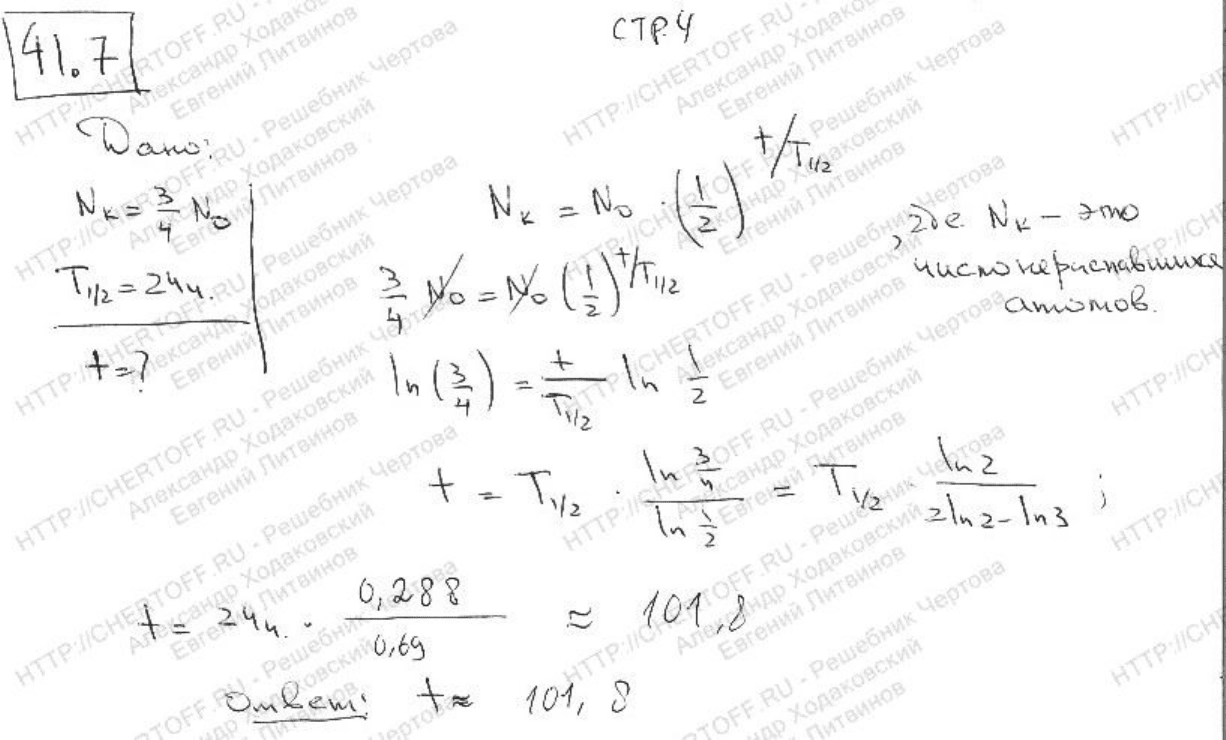 41.7
СТР.4
Дано:
N_k = 3/4 N_0
T_1/2 = 24ч.
t = ?
N_k = N_0 · (1/2)^(t/T_1/2)
, где N_k – это
число нераспавшихся
атомов.
3/4 N_0 = N_0 (1/2)^(t/T_1/2)
ln (3/4) = t/T_1/2 ln 1/2
t = T_1/2 · (ln 3/4)/(ln 1/2) = T_1/2 · (ln 2)/(2ln2 - ln3) ;
t = 24ч. · 0,288/0,69 ≈ 101,8
Ответ: t ≈ 101,8
HTTP://CHERTOFF.RU - Решебник Чертова
Александр Ходаковский
Евгений Литвинов